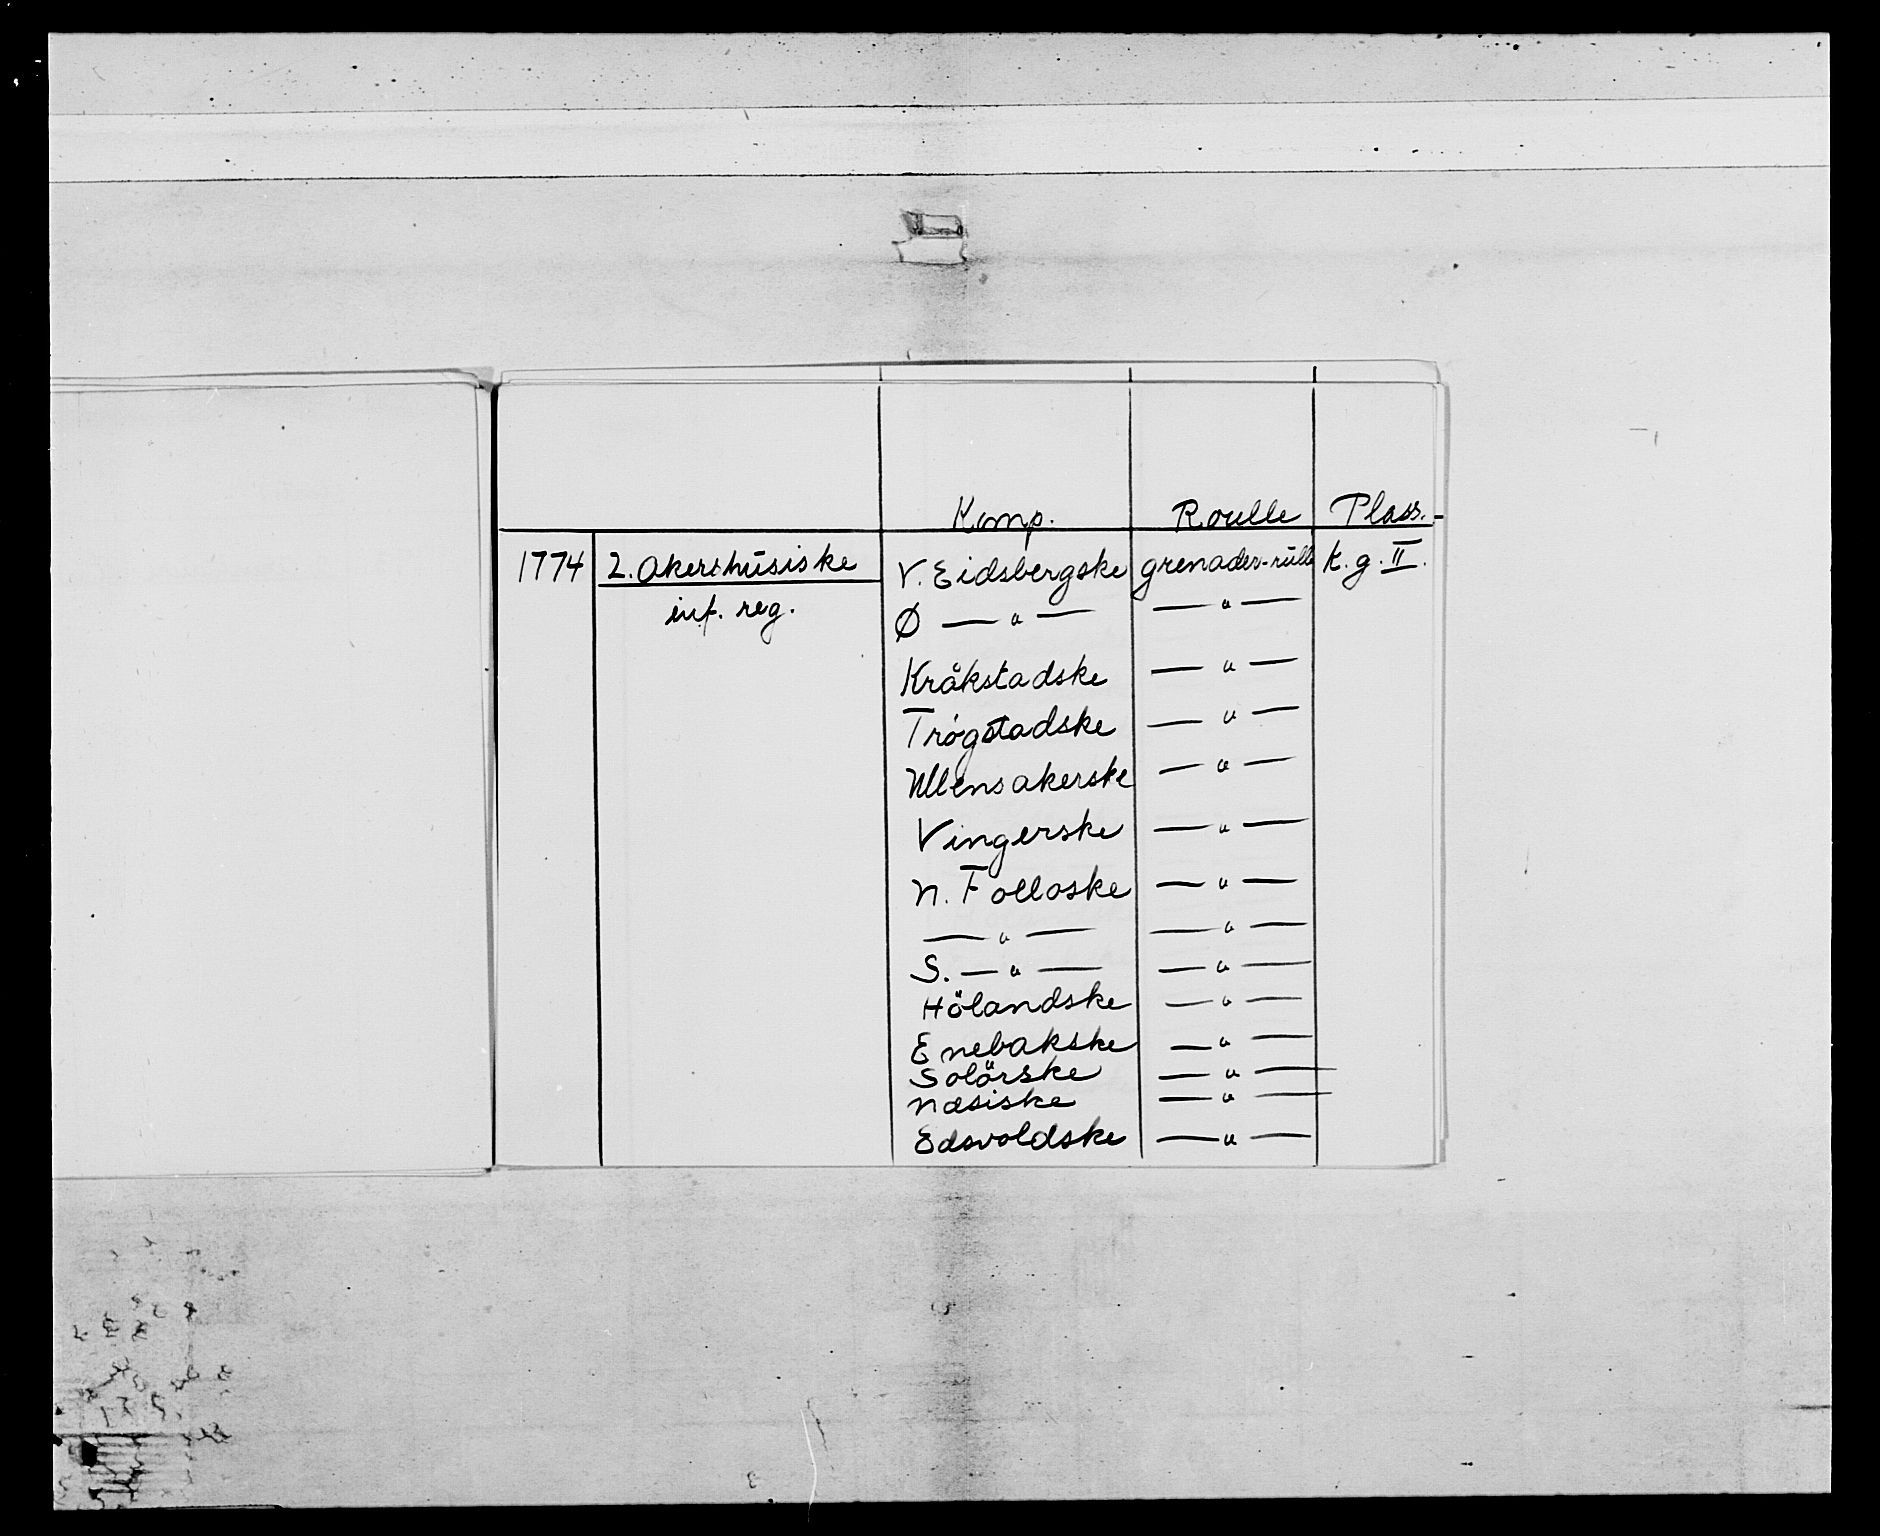 Komp. Roulle Plass.-
1774 2. Akershusiske V. Eidsbergske grenader-rulle k. g. II.
inf. reg. Ø — " — — " —
Kråkstadske — " —
Trøgstadske — " —
Ullensakerske — " —
Vingerske — " —
N. Folloske — " —
— " — — " —
S. — " — — " —
Hölandske — " —
Enebakske — " —
Solörske — " —
Næsiske — " —
Edsvoldske — " —